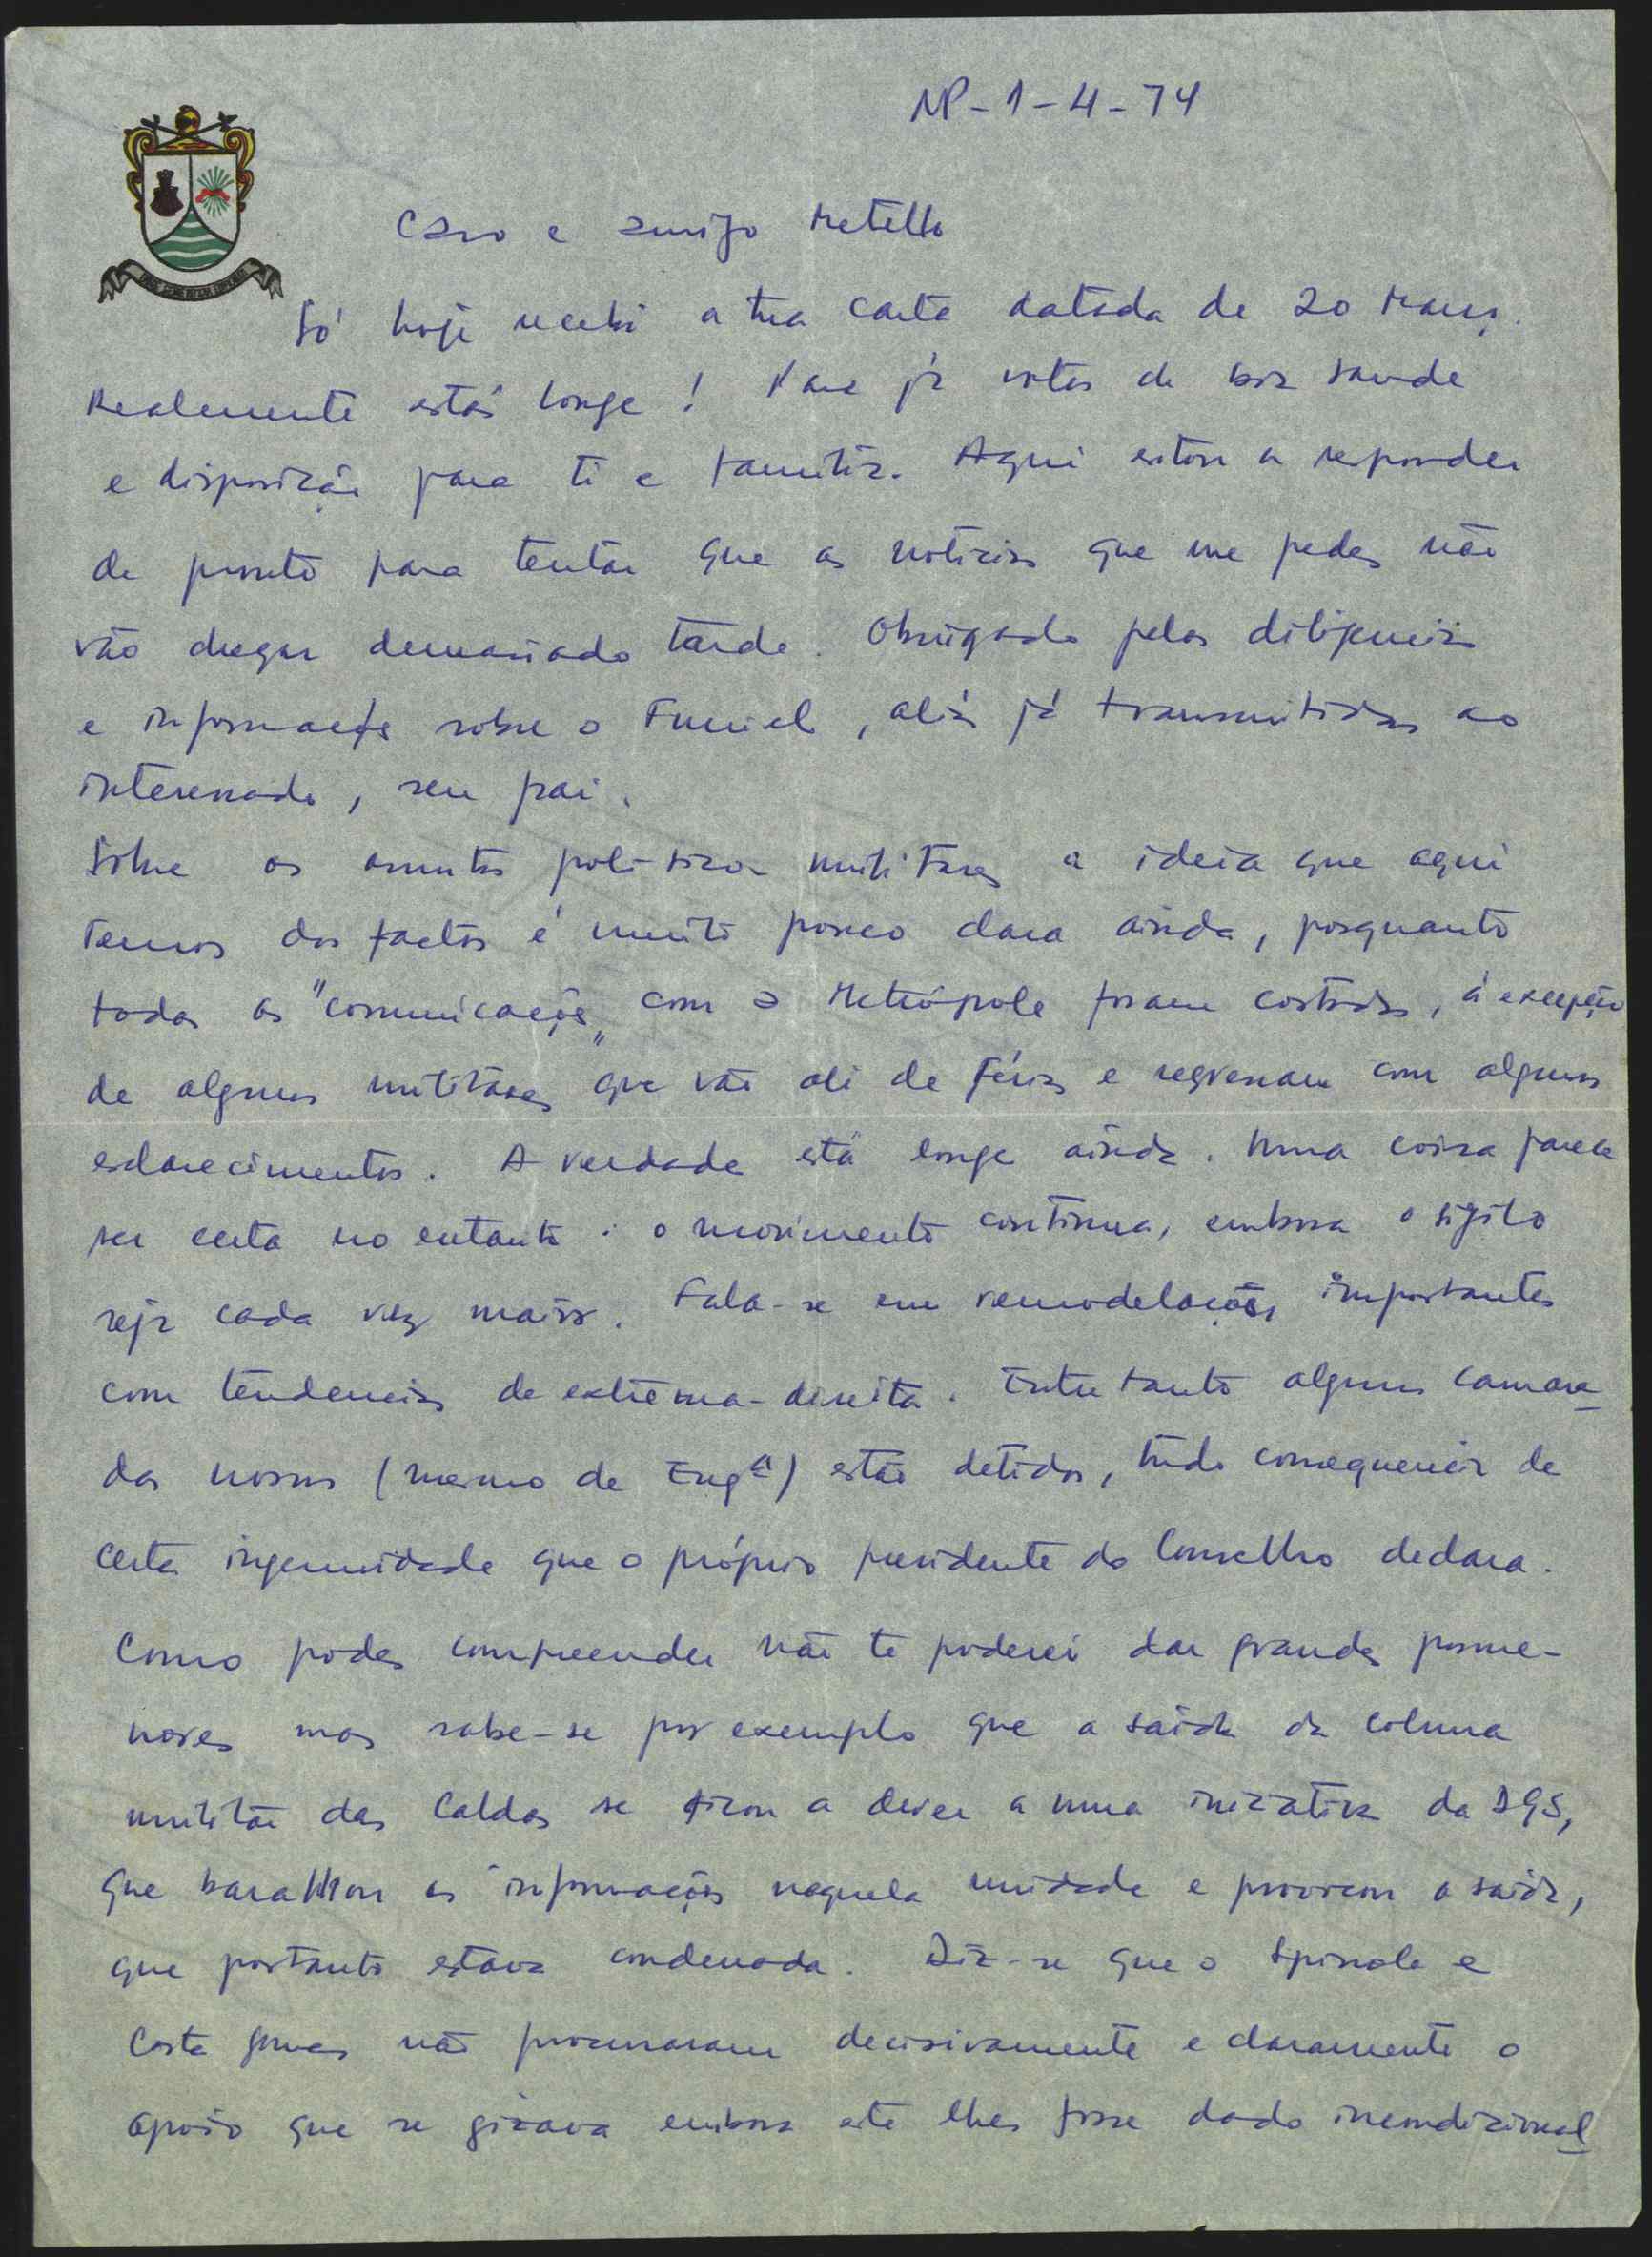 NP-1-4-74
Caro e amigo Metello
Só hoje recebi a tua carta datada de 20 Março.
Realmente estás longe! Para já votos de boa saude
e disposição para ti e familia. Aqui estou a responder
de pronto para tentar que as noticias que me pedes não
vão chegar demasiado tarde. Obrigado pelas diligencias
e informações sobre o Furriel, aliás já transmitidas ao
interessado, seu pai.
Sobre os assuntos politico-militares a ideia que aqui
temos dos factos é muito pouco clara ainda, porquanto
todas as "comunicações" com a Metrópole foram cortadas, á excepção
de alguns militares que vão ali de férias e regressam com alguns
esclarecimentos. A verdade está longe ainda. Uma coisa parece
ser certa no entanto: o movimento continua, embora o sigilo
seja cada vez maior. Fala-se em remodelações importantes
com tendencias de extrema-direita. Entretanto alguns camara
das nossos (mesmo de Engª) estão detidos, tudo consequencia de
certa ingenuidade que o próprio presidente do Conselho declara.
Como podes compreender não te poderei dar grandes porme-
nores mas sabe-se por exemplo que a saída da coluna
militar das Caldas se ficou a dever a uma iniciativa da DGS,
que baralhou as informações naquela unidade e provocou a saida,
que portanto estava condenada. Diz-se que o Spinola e
Costa Gomes não procuraram decisivamente e claramente o
apoio que se gizava embora este lhes fosse dado incondicional